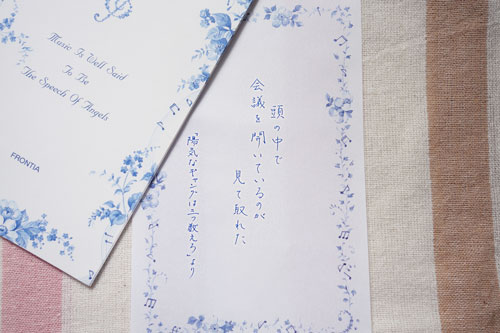 Music Is Well Said
To Be
The Speech Of Angels
FRONTIA
頭の中で
会議を開いているのが
見て取れた
「陽気なギャングは三つ数えろ」より